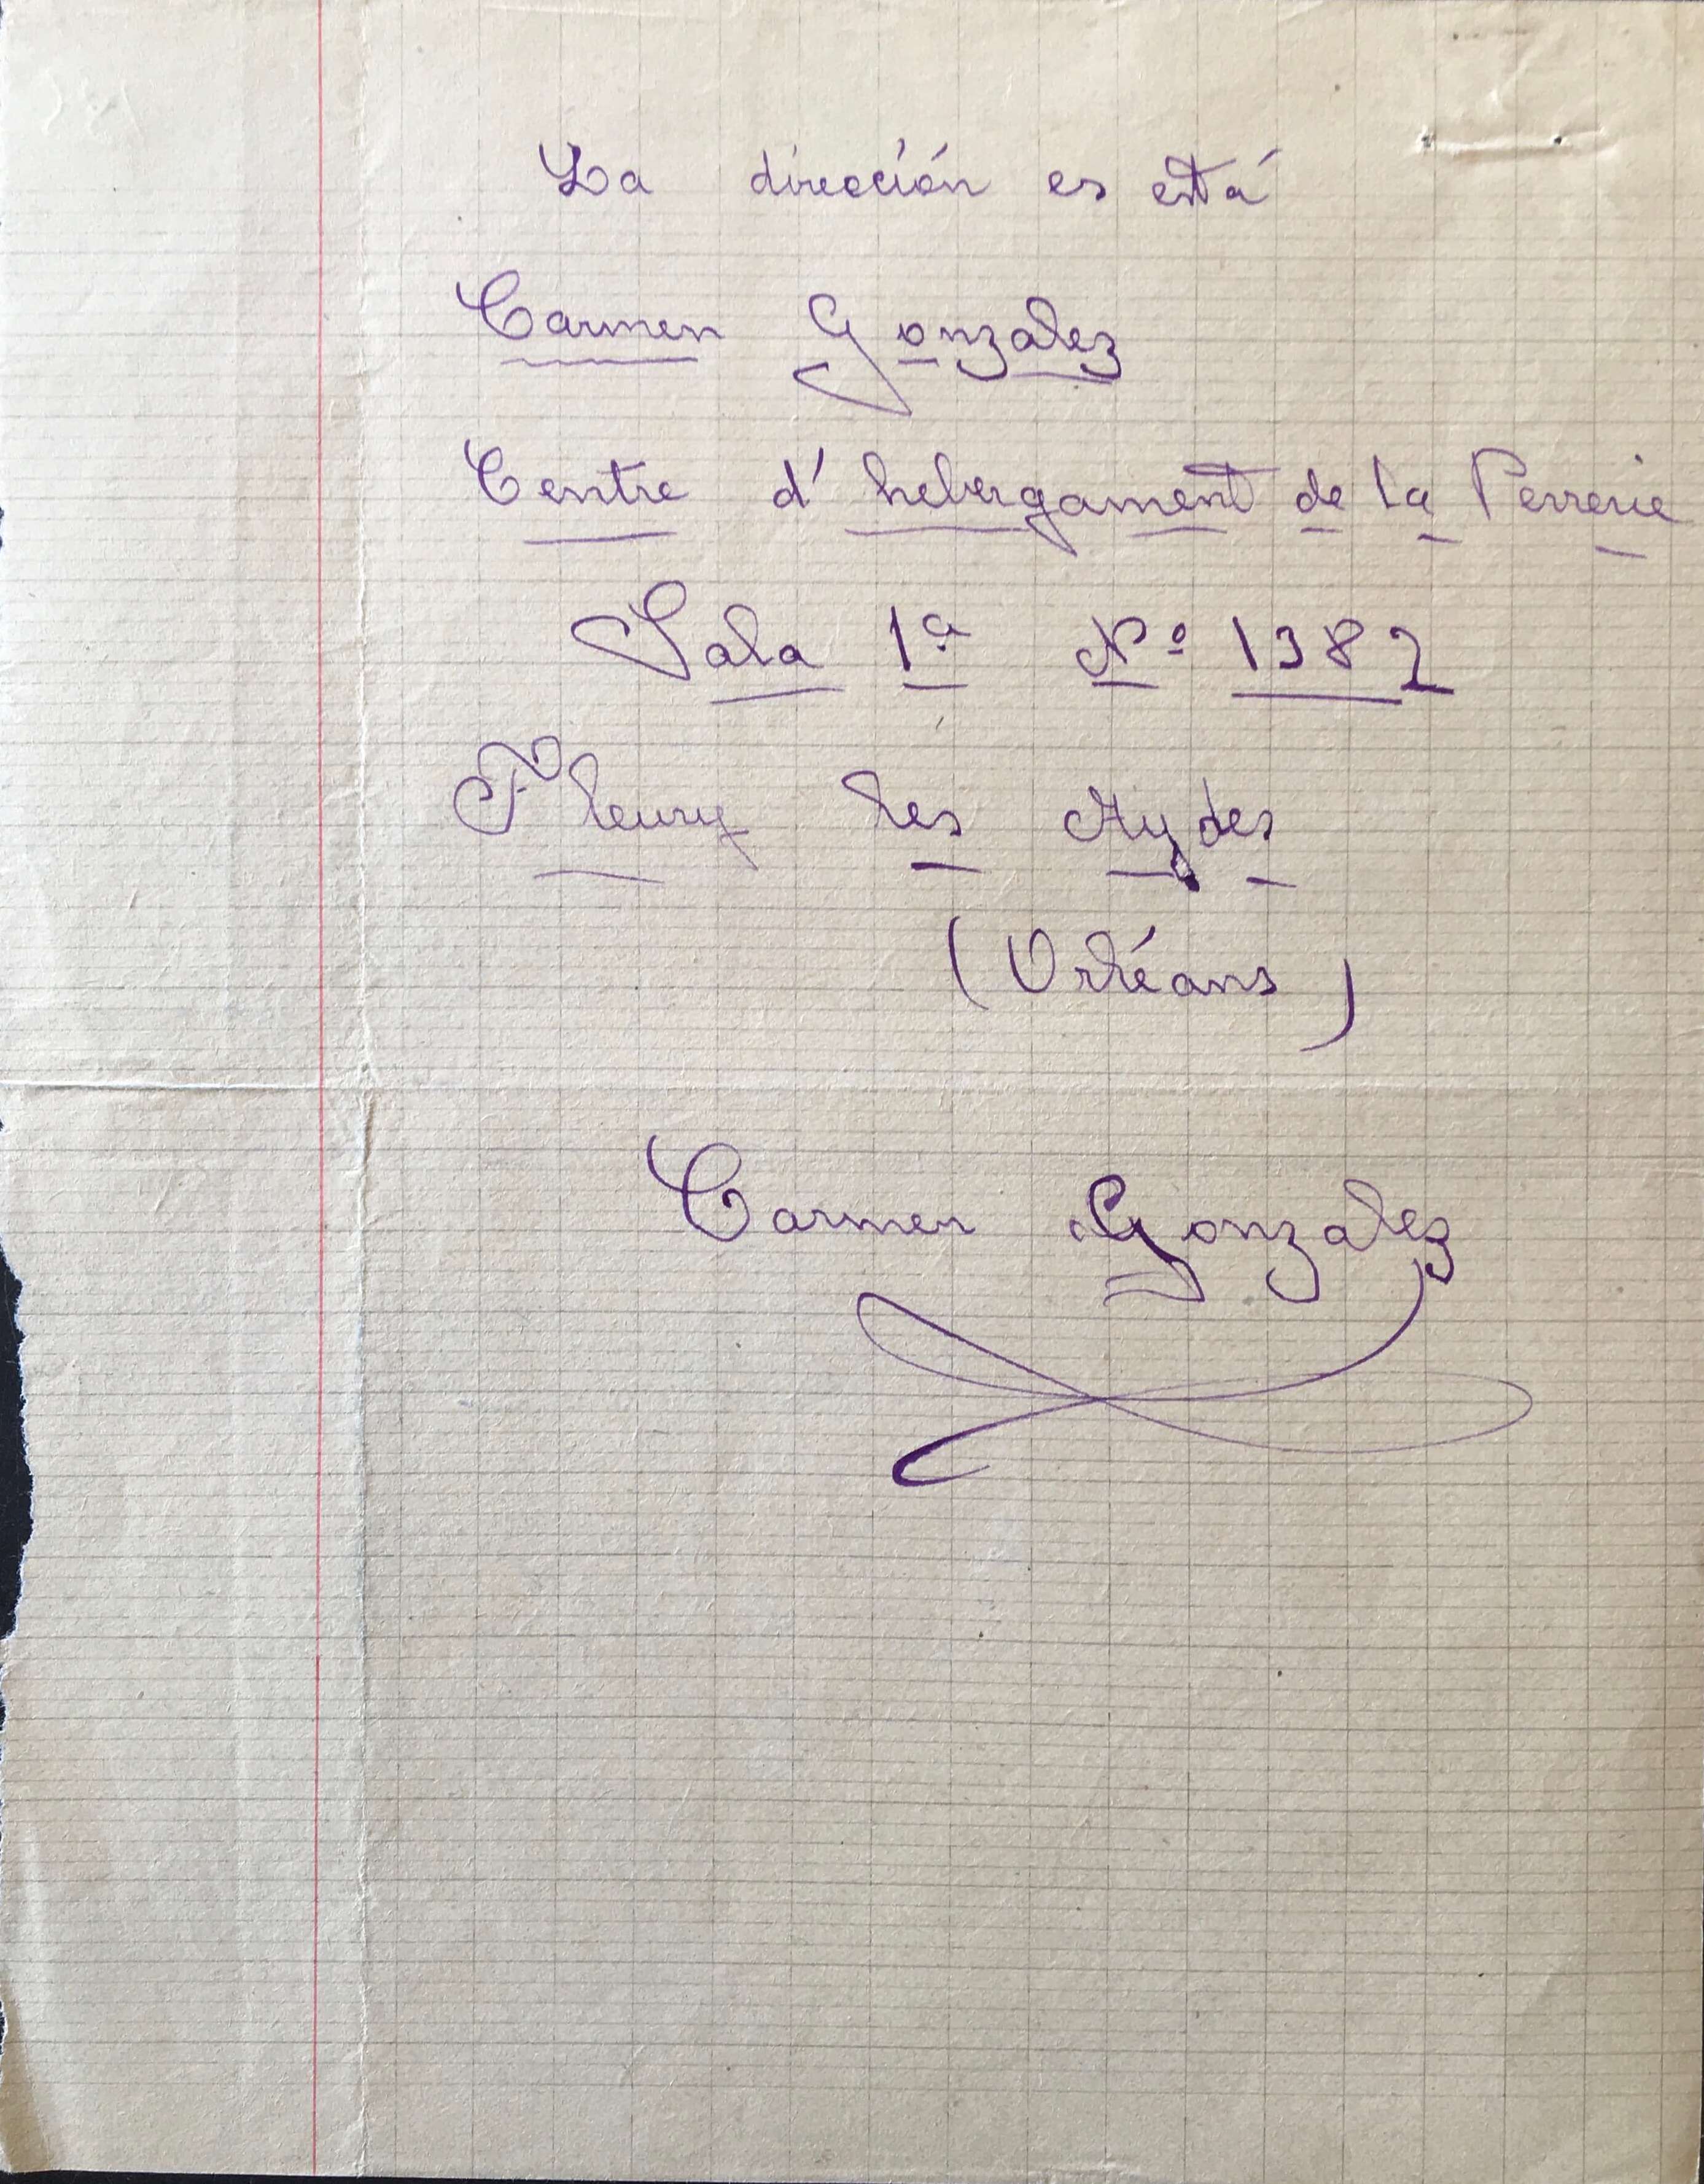 La dirección es está
Carmen Gonzalez
Centre d' hebergament de la Verrerie
Sala 1ª Nº 1382
Fleury les Aydes
(Orléans)
Carmen Gonzalez